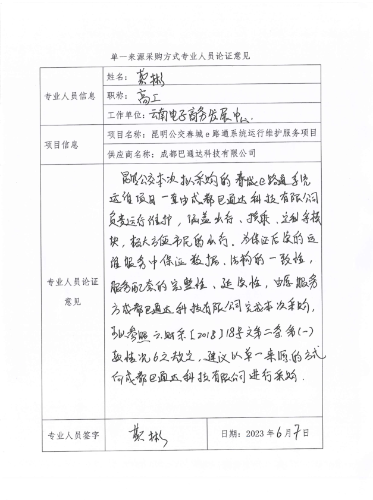 单一来源采购方式专业人员论证意见
专业人员信息
姓名： 彬
职称：高工
工作单位：云南电子商务发展中心.
项目信息
项目名称：昆明公交春城e路通系统运行维护服务项目
供应商名称：成都巴通达科技有限公司
专业人员论证意见
昆明公交本次拟采购的春城e路通系统
运维项目一直由成都巴通达科技有限公司
负责运行维护，涵盖出行、换乘、定制等模
块，极大方便市民的出行。为保证后续的运
维服务中保证数据、结构的一致性，
服务配套的完整性、延续性，由原服务
方成都巴通达科技有限公司完成本次采购，
可以参照云财采[2018]18号文第二条第(一)
款情况6之规定，建议以单一来源的方式
向成都巴通达科技有限公司进行采购.
专业人员签字
彬
日期：2023年6月7日